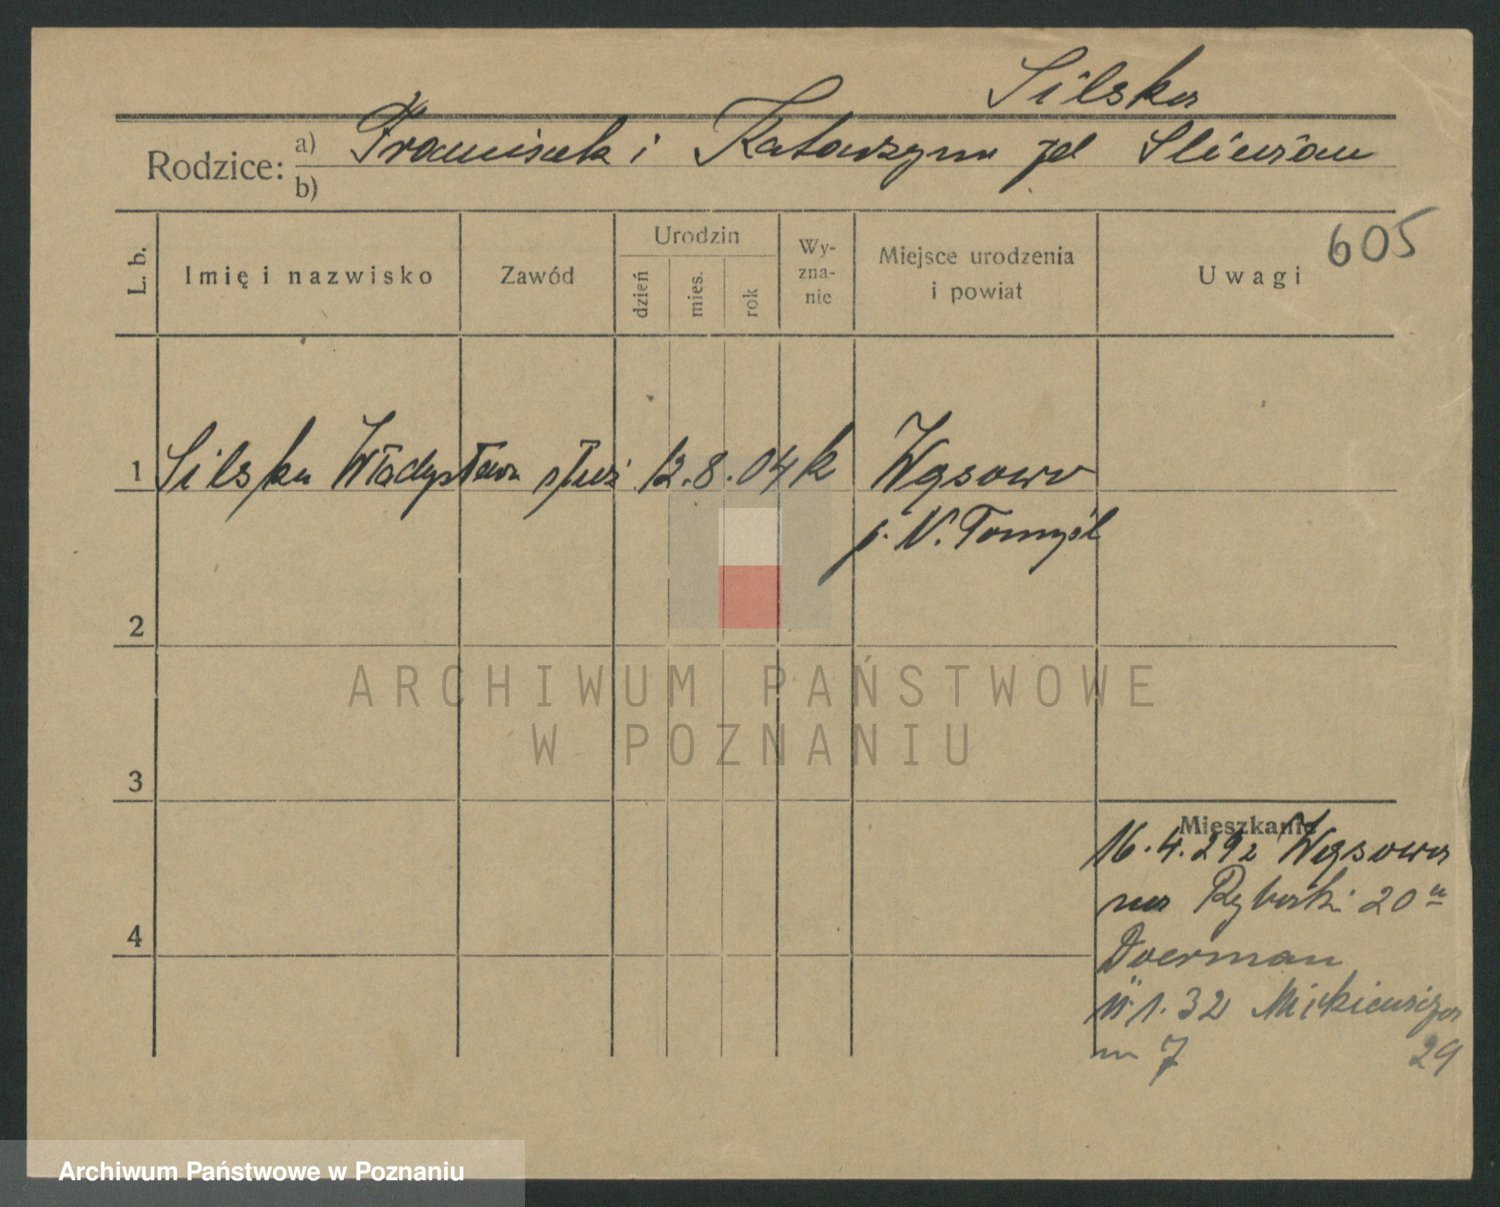 Silska
Rodzice: a) Franciszek i Katarzyna zd Śliwian
b)
605
L. b. Imię i nazwisko Zawód Urodzin dzień mies. rok Wy-zna-nie Miejsce urodzenia i powiat Uwagi
1 Silska Władysława służ 12.8.04 k Wąsowo
p. N. Tomyśl
2
ARCHIWUM PAŃSTWOWE
W POZNANIU
3
Mieszkanie
16.4.29 z Wąsowa
na Rybaki 20 u
4
Doerman
1.32 Mickiewicza
m 7 29
Archiwum Państwowe w Poznaniu